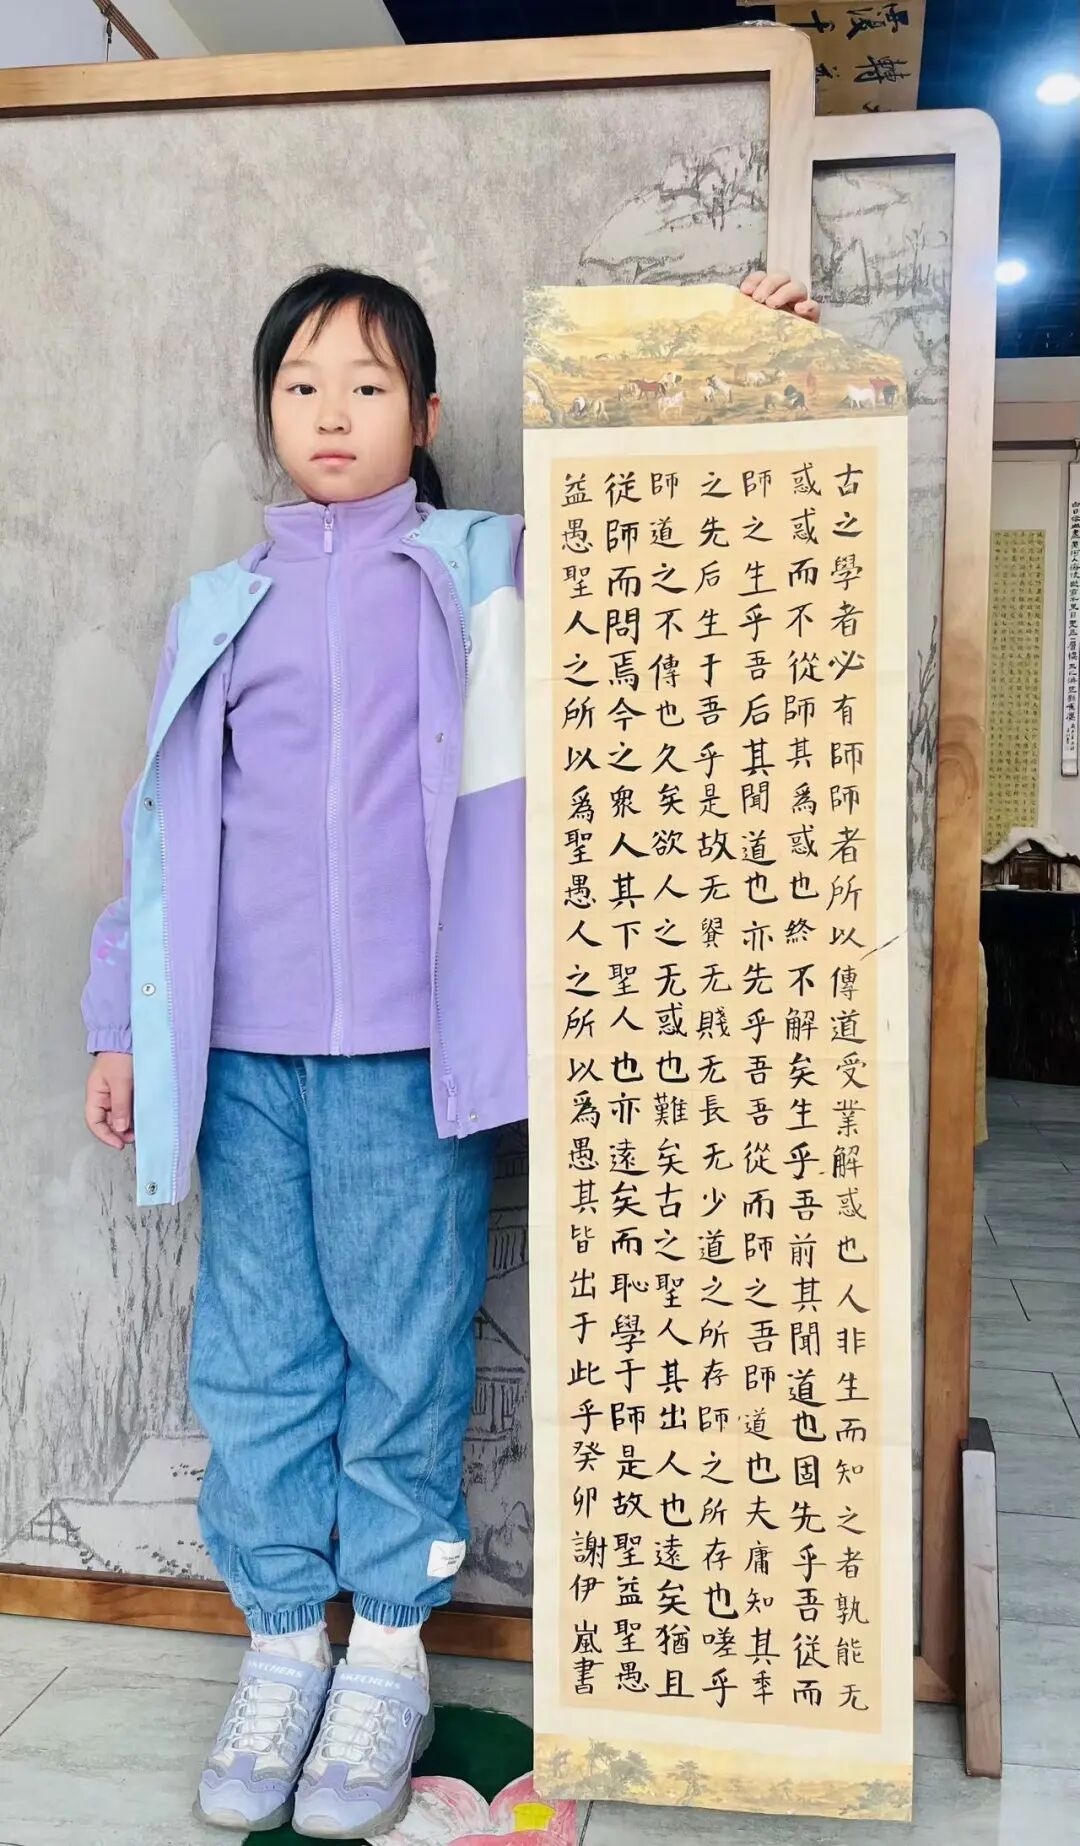 古之學者必有師師者所以傳道受業解惑也人非生而知之者孰能无
惑惑而不從師其爲惑也終不解矣生乎吾前其聞道也固先乎吾從而
師之生乎吾后其聞道也亦先乎吾吾從而師之吾師道也夫庸知其秊
之先后生于吾乎是故无貴无賤无長无少道之所存師之所存也嗟乎
師道之不傳也久矣欲人之无惑也難矣古之聖人其出人也遠矣猶且
從師而問焉今之衆人其下聖人也亦遠矣而恥學于師是故聖益聖愚
益愚聖人之所以爲聖愚人之所以爲愚其皆出于此乎癸卯謝伊嵐書
SKECHERS
SKECHERS